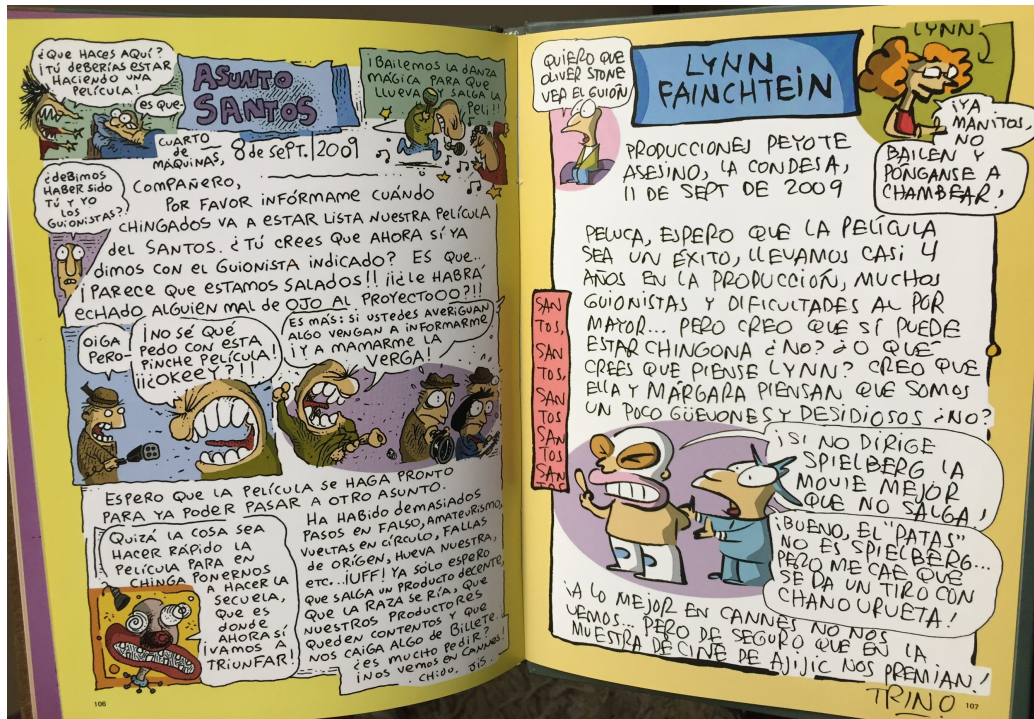 ¿QUE HACES AQUÍ?
¡TÚ DEBERÍAS ESTAR
HACIENDO UNA
PELÍCULA!
es que-
ASUNTO
SANTOS
¡BAILEMOS LA DANZA
MÁGICA PARA QUE
LLUEVA Y SALGA LA
PELI!!
CUARTO
de
MÁQUINAS,
8 de SEPT. 2009
¿DEBIMOS
HABER SIDO
TÚ Y YO
LOS
GUIONISTAS?
COMPAÑERO,
POR FAVOR INFÓRMAME CUÁNDO
CHINGADOS VA A ESTAR LISTA NUESTRA PELÍCULA
del SANTOS. ¿TÚ CREES QUE AHORA SÍ YA
DIMOS CON EL GUIONISTA INDICADO? ES QUE..
¡PARECE QUE ESTAMOS SALADOS!! ¡¡¿LE HABRÁ
ECHADO ALGUIEN MAL DE OJO AL PROYECTOOO?!!
OIGA
PERO-
¡NO SÉ QUÉ
PEDO CON ESTA
PINCHE PELÍCULA!
¡¡¿OKEEY?!!!
ES MÁS: SI USTEDES AVERIGUAN
ALGO VENGAN A INFORMARME
¡Y A MAMARME LA
VERGA!
ESPERO QUE LA PELÍCULA SE HAGA PRONTO
PARA YA PODER PASAR A OTRO ASUNTO.
QUIZÁ LA COSA SEA
HACER RÁPIDO LA
PELÍCULA PARA EN
CHINGA PONERNOS
A HACER LA
SECUELA,
QUE ES
DONDE
AHORA SÍ
¡VAMOS A
TRIUNFAR!
HA HABIDO DEMASIADOS
PASOS EN FALSO, AMATEURISMO,
VUELTAS EN CÍRCULO, FALLAS
DE ORÍGEN, HUEVA NUESTRA,
ETC... ¡UFF! YA SÓLO ESPERO
QUE SALGA UN PRODUCTO DECENTE,
QUE LA RAZA SE RÍA, QUE
NUESTROS PRODUCTORES
QUEDEN CONTENTOS Y QUE
NOS CAIGA ALGO DE BILLETE.
¿ES MUCHO PEDIR?
¡NOS VEMOS EN CANNES!
CHIDO. JIS.
106
QUIERO QUE
OLIVER STONE
VEA EL GUIÓN
LYNN
FAINCHTEIN
LYNN
¡YA
MANITOS,
NO
BAILEN Y
PÓNGANSE A
CHAMBEAR!
PRODUCCIONES PEYOTE
ASESINO, LA CONDESA,
11 DE SEPT DE 2009
PELUCA, ESPERO QUE LA PELÍCULA
SEA UN ÉXITO, LLEVAMOS CASI 4
AÑOS EN LA PRODUCCIÓN, MUCHOS
GUIONISTAS Y DIFICULTADES AL POR
MAYOR... PERO CREO QUE SÍ PUEDE
ESTAR CHINGONA ¿NO? ¿O QUÉ
CREES QUE PIENSE LYNN? CREO QUE
ELLA Y MÁRGARA PIENSAN QUE SOMOS
UN POCO GÜEVONES Y DESIDIOSOS ¿NO?
SAN
TOS,
SAN
TOS,
SAN
TOS
SAN
TOS
SAN
¡SI NO DIRIGE
SPIELBERG LA
MOVIE MEJOR
QUE NO SALGA!
¡BUENO, EL "PATAS"
NO ES SPIELBERG...
PERO ME CAE QUE
SE DA UN TIRO CON
CHANO URUETA!
¡A LO MEJOR EN CANNES NO NOS
VEMOS... PERO DE SEGURO QUE EN LA
MUESTRA DE CINE DE AJIJIC NOS PREMIAN!
TRINO
107